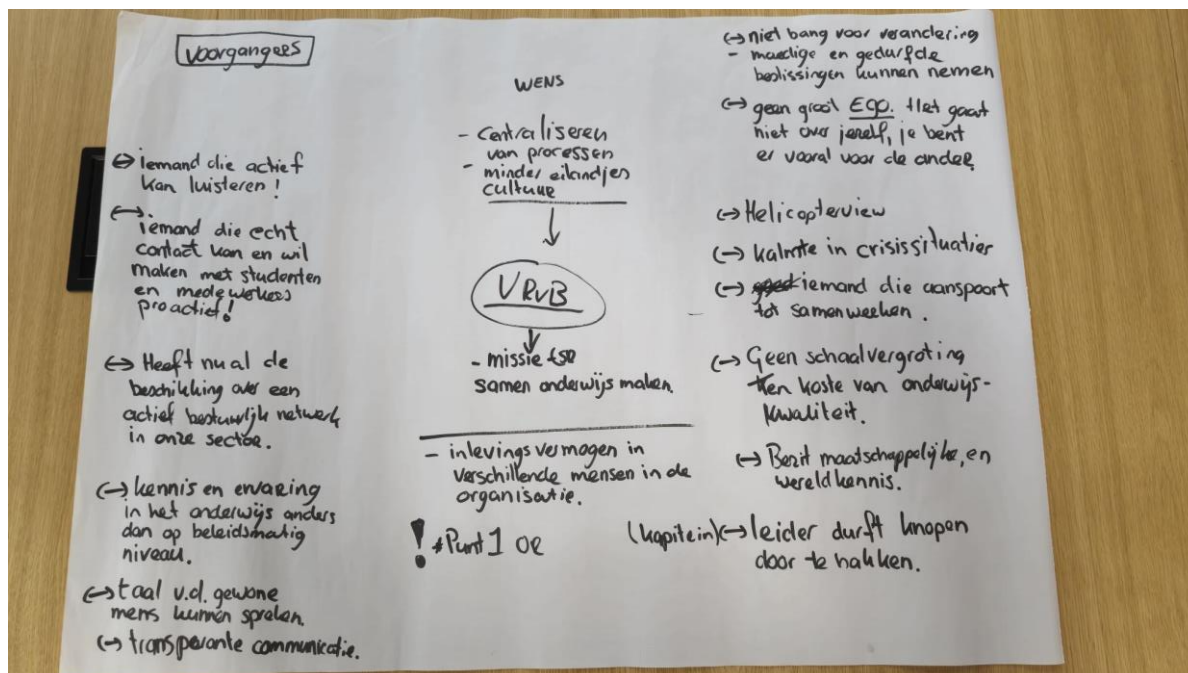 voorgangers
↔ iemand die actief
kan luisteren!
↔ iemand die echt
contact kan en wil
maken met studenten
en medewerkers
proactief!
↔ Heeft nu al de
beschikking over een
actief bestuurlijk netwerk
in onze sector.
↔ kennis en ervaring
in het onderwijs anders
dan op beleidsmatig
niveau.
↔ taal v.d. gewone
mens kunnen spreken.
↔ transparante communicatie.
WENS
- Centraliseren
van processen
- minder eilandjes
cultuur
↓
VRvB
↓
- missie
samen onderwijs maken.
- inlevingsvermogen in
verschillende mensen in de
organisatie.
! * Punt 1 OR
↔ niet bang voor verandering
- moedige en gedurfde
beslissingen kunnen nemen
↔ geen groot EGO. Het gaat
niet over jezelf, je bent
er vooral voor de ander,
↔ Helicopterview
↔ kalmte in crisissituaties
↔ iemand die aanspoort
tot samenwerken.
↔ Geen schaalvergroting
ten koste van onderwijs-
kwaliteit.
↔ Bezit maatschappelijke, en
wereldkennis.
(kapitein) ↔ leider durft knopen
door te hakken.